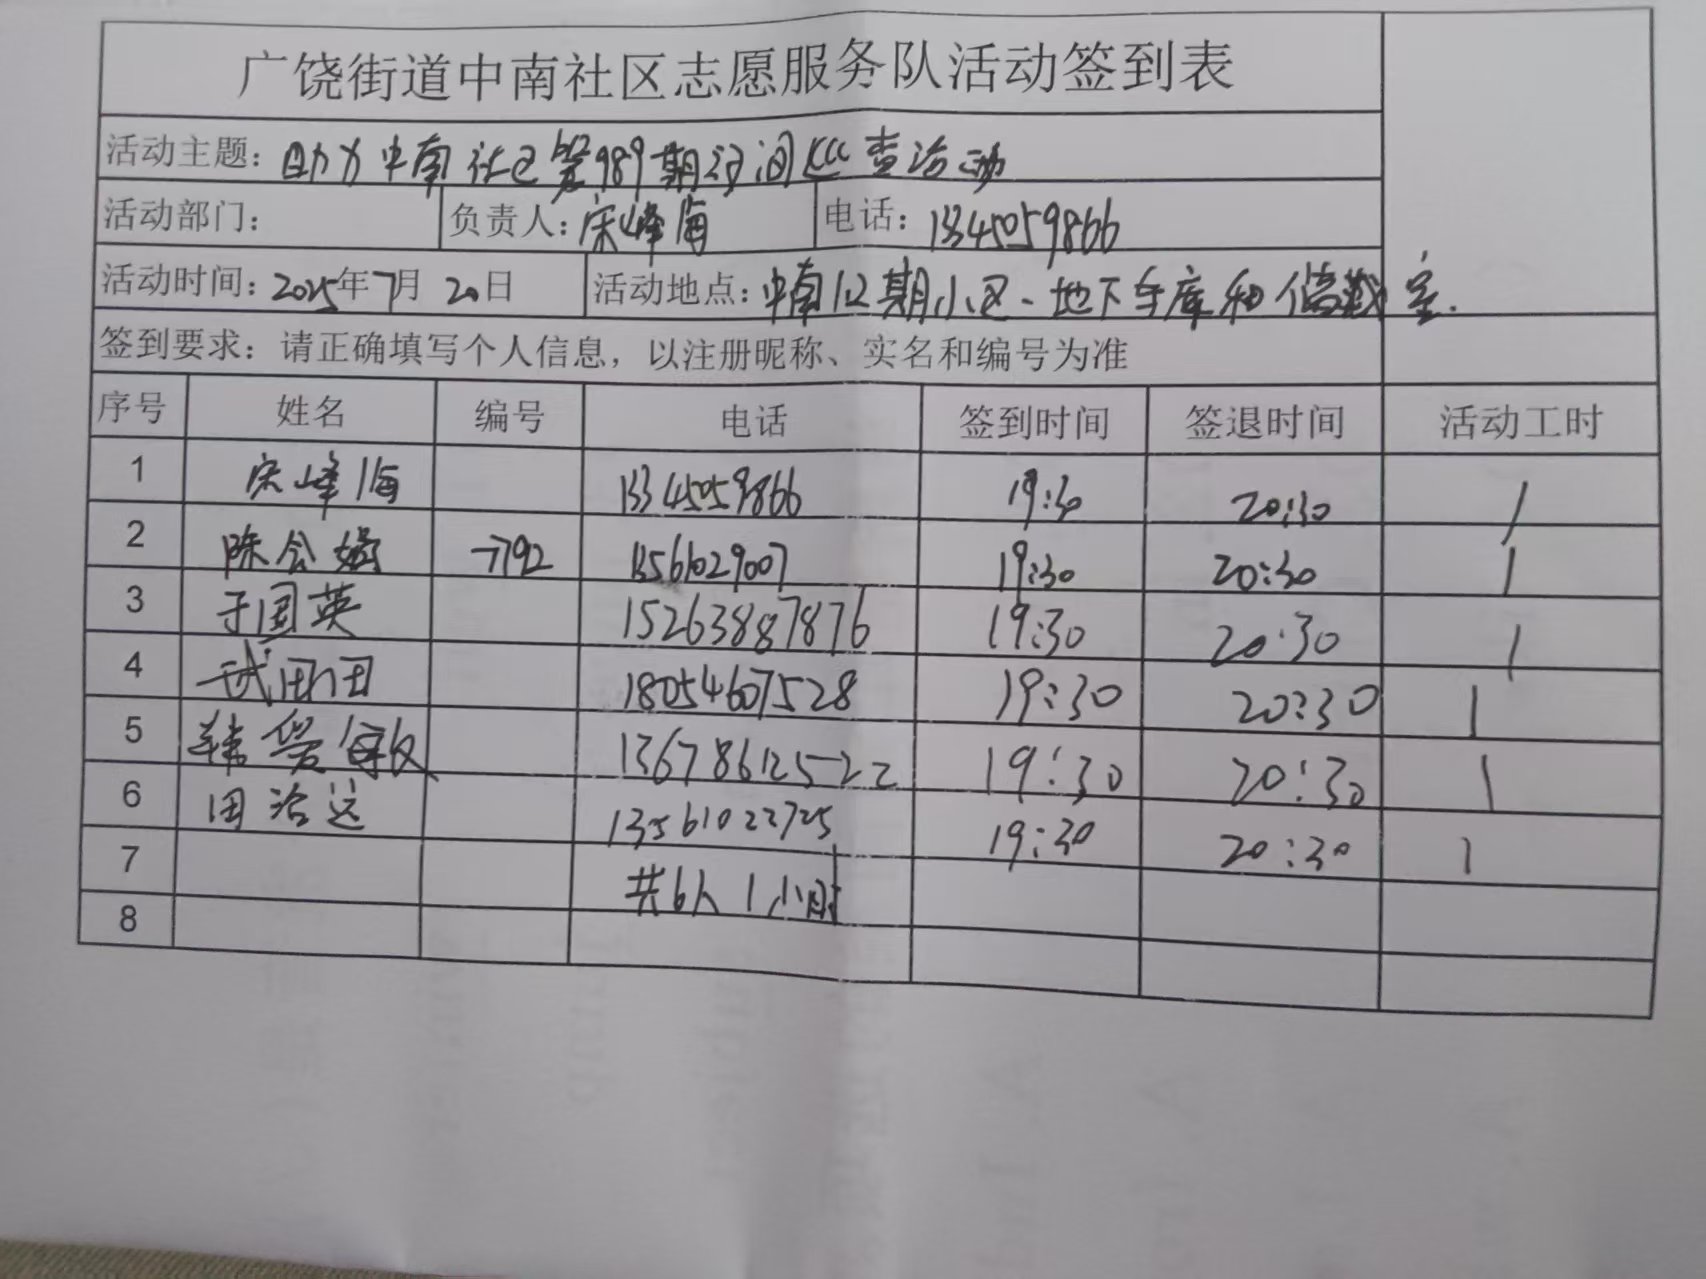 广饶街道中南社区志愿服务队活动签到表
活动主题：助力中南社区第989期夜间巡查活动
活动部门： 负责人：宋峰海 电话：13345059866
活动时间：2025年7月20日 活动地点：中南1、2期小区、地下车库和储藏室.
签到要求：请正确填写个人信息，以注册昵称、实名和编号为准
序号 姓名 编号 电话 签到时间 签退时间 活动工时
1 宋峰海 13345059866 19:30 20:30 1
2 陈会娟 7792 13561029007 19:30 20:30 1
3 于国英 15263887876 19:30 20:30 1
4 武田田 18054607528 19:30 20:30 1
5 韩爱敏 13678612522 19:30 20:30 1
6 田治远 13561022725 19:30 20:30 1
7 共6人1小时
8